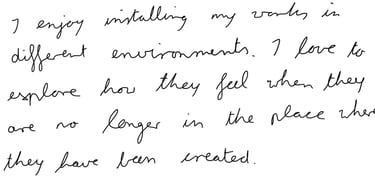 I enjoy installing my works in
different environments. I love to
explore how they feel when they
are no longer in the place where
they have been created.